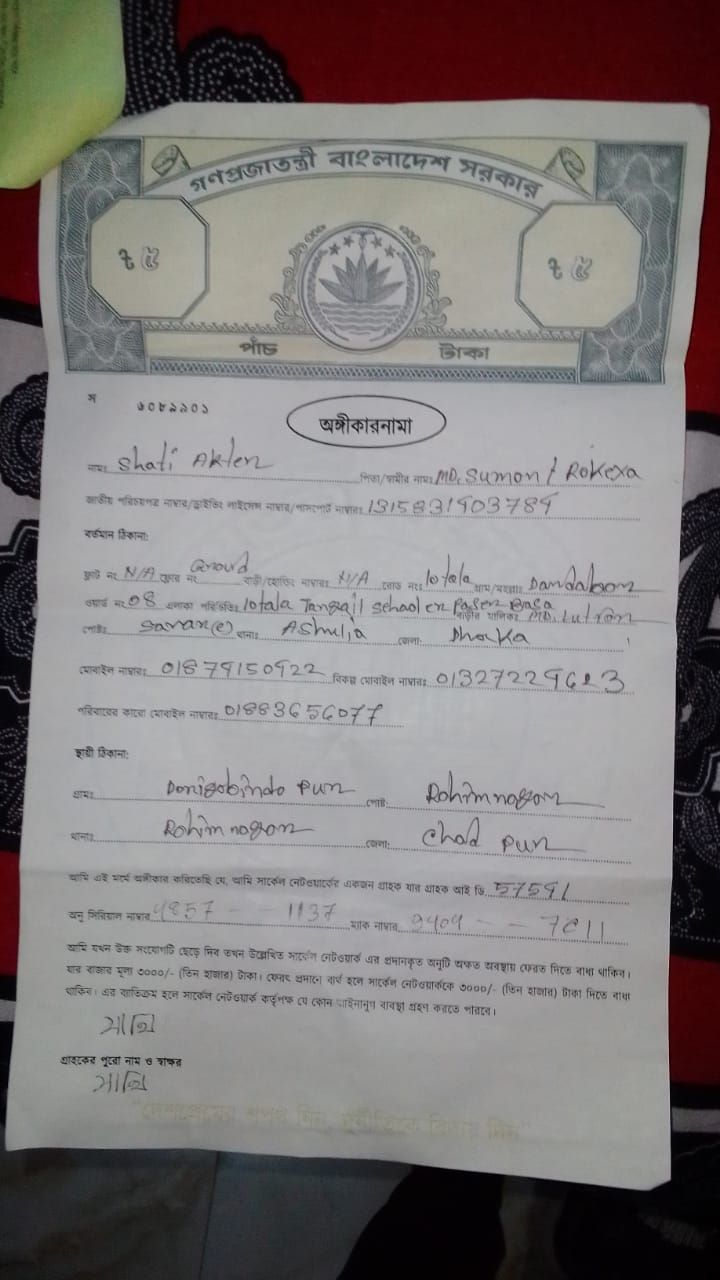 গণপ্রজাতন্ত্রী বাংলাদেশ সরকার
৳ ৫ ৳ ৫
পাঁচ টাকা
স ৬০৮৯৯০১
অঙ্গীকারনামা
নাম: Shati Akter পিতা/স্বামীর নাম: MD. Sumon / Rokexa
জাতীয় পরিচয়পত্র নাম্বার/ড্রাইভিং লাইসেন্স নাম্বার/পাসপোর্ট নাম্বার: 1315831903789
বর্তমান ঠিকানা:
ফ্লাট নং N/A ফ্লোর নং Groud বাড়ী/হোল্ডিং নাম্বার: N/A রোড নং: 10 tala গ্রাম/মহল্লা: Dandabon
ওয়ার্ড নং 08 এলাকা পরিচিতি: 10 tala Tangail School er Paser Basa বাড়ীর মালিক: MD. Lutfor
পোষ্ট: Savar(e) থানা: Ashulia জেলা: Dhaka
মোবাইল নাম্বার: 01879150922 বিকল্প মোবাইল নাম্বার: 013272296
পরিবারের কারো মোবাইল নাম্বার: 01883656077
স্থায়ী ঠিকানা:
গ্রাম: Donigobindo pur পোষ্ট: Rohimnogor
থানা: Rohimnogor জেলা: Chad pur
আমি এই মর্মে অঙ্গীকার করিতেছি যে, আমি সার্কেল নেটওয়ার্কের একজন গ্রাহক যার গ্রাহক আই ডি. 57591
অনু সিরিয়াল নাম্বার 4857 - - 1137 ম্যাক নাম্বার 9409 - - 7811
আমি যখন উক্ত সংযোগটি ছেড়ে দিব তখন উল্লেখিত সার্কেল নেটওয়ার্ক এর প্রদানকৃত অনুটি অক্ষত অবস্থায় ফেরত দিতে বাধ্য থাকিব।
যার বাজার মূল্য ৩০০০/- (তিন হাজার) টাকা। ফেরৎ প্রদানে ব্যর্থ হলে সার্কেল নেটওয়ার্ককে ৩০০০/- (তিন হাজার) টাকা দিতে বাধ্য
থাকিব। এর ব্যতিক্রম হলে সার্কেল নেটওয়ার্ক কর্তৃপক্ষ যে কোন আইনানুগ ব্যবস্থা গ্রহণ করতে পারবে।
সাথি
গ্রাহকের পুরো নাম ও স্বাক্ষর
সাথি
"দেশপ্রেমের শপথ নিন, দুর্নীতিকে বিদায় দিন"